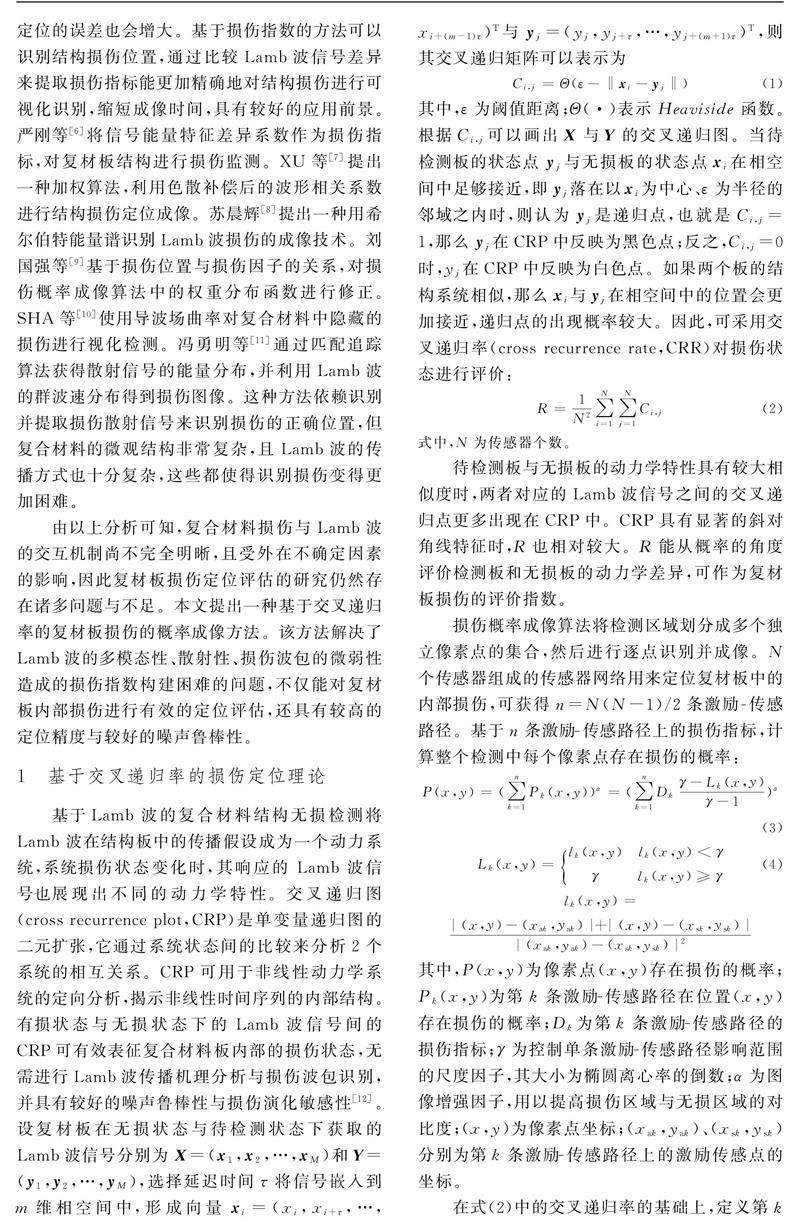 定位的误差也会增大。基于损伤指数的方法可以
识别结构损伤位置,通过比较 Lamb 波信号差异
来提取损伤指标能更加精确地对结构损伤进行可
视化识别,缩短成像时间,具有较好的应用前景。
严刚等[6]将信号能量特征差异系数作为损伤指
标,对复材板结构进行损伤监测。XU 等[7]提出
一种加权算法,利用色散补偿后的波形相关系数
进行结构损伤定位成像。苏晨辉[8]提出一种用希
尔伯特能量谱识别 Lamb 波损伤的成像技术。刘
国强等[9]基于损伤位置与损伤因子的关系,对损
伤概率成像算法中的权重分布函数进行修正。
SHA 等[10]使用导波场曲率对复合材料中隐藏的
损伤进行视化检测。冯勇明等[11]通过匹配追踪
算法获得散射信号的能量分布,并利用 Lamb 波
的群波速分布得到损伤图像。这种方法依赖识别
并提取损伤散射信号来识别损伤的正确位置,但
复合材料的微观结构非常复杂,且 Lamb 波的传
播方式也十分复杂,这些都使得识别损伤变得更
加困难。
由以上分析可知,复合材料损伤与 Lamb 波
的交互机制尚不完全明晰,且受外在不确定因素
的影响,因此复材板损伤定位评估的研究仍然存
在诸多问题与不足。本文提出一种基于交叉递归
率的复材板损伤的概率成像方法。该方法解决了
Lamb 波的多模态性、散射性、损伤波包的微弱性
造成的损伤指数构建困难的问题,不仅能对复材
板内部损伤进行有效的定位评估,还具有较高的
定位精度与较好的噪声鲁棒性。
1 基于交叉递归率的损伤定位理论
基于 Lamb 波的复合材料结构无损检测将
Lamb 波在结构板中的传播假设成为一个动力系
统,系统损伤状态变化时,其响应的 Lamb 波信
号也展现出不同的动力学特性。交叉递归图
(cross recurrence plot,CRP)是单变量递归图的
二元扩张,它通过系统状态间的比较来分析 2 个
系统的相互关系。CRP 可用于非线性动力学系
统的定向分析,揭示非线性时间序列的内部结构。
有损状态与无损状态下的 Lamb 波信号间的
CRP 可有效表征复合材料板内部的损伤状态,无
需进行 Lamb 波传播机理分析与损伤波包识别,
并具有较好的噪声鲁棒性与损伤演化敏感性[12]。
设复材板在无损状态与待检测状态下获取的
Lamb 波信号分别为 X=(x₁,x₂,…,x_M)和 Y=
(y₁,y₂,…,y_M),选择延迟时间 τ 将信号嵌入到
m 维相空间中,形成向量 x_i = (x_i,x_{i+τ},…,
x_{i+(m-1)τ})^T 与 y_j=(y_j,y_{j+τ},…,y_{j+(m+1)τ})^T,则
其交叉递归矩阵可以表示为
C_{i,j} = Θ(ε−‖x_i−y_j‖) (1)
其中,ε 为阈值距离;Θ(·)表示 Heaviside 函数。
根据 C_{i,j}可以画出 X 与 Y 的交叉递归图。当待
检测板的状态点 y_j 与无损板的状态点 x_i 在相空
间中足够接近,即 y_j 落在以 x_i 为中心、ε 为半径的
邻域之内时,则认为 y_j 是递归点,也就是 C_{i,j} =
1,那么 y_j 在 CRP 中反映为黑色点;反之,C_{i,j}=0
时,y_j 在 CRP 中反映为白色点。如果两个板的结
构系统相似,那么 x_i 与 y_j 在相空间中的位置会更
加接近,递归点的出现概率较大。因此,可采用交
叉递归率(cross recurrence rate,CRR)对损伤状
态进行评价:
R = \frac{1}{N^2} \sum_{i=1}^{N} \sum_{j=1}^{N} C_{i,j} (2)
式中,N 为传感器个数。
待检测板与无损板的动力学特性具有较大相
似度时,两者对应的 Lamb 波信号之间的交叉递
归点更多出现在 CRP 中。CRP 具有显著的斜对
角线特征时,R 也相对较大。R 能从概率的角度
评价检测板和无损板的动力学差异,可作为复材
板损伤的评价指数。
损伤概率成像算法将检测区域划分成多个独
立像素点的集合,然后进行逐点识别并成像。N
个传感器组成的传感器网络用来定位复材板中的
内部损伤,可获得 n=N(N−1)/2 条激励-传感
路径。基于 n 条激励-传感路径上的损伤指标,计
算整个检测中每个像素点存在损伤的概率:
P(x,y) = (\sum_{k=1}^{n} P_k(x,y))^α = (\sum_{k=1}^{n} D_k \frac{γ−L_k(x,y)}{γ−1})^α
(3)
L_k(x,y) = { l_k(x,y) l_k(x,y)<γ ; γ l_k(x,y)≥γ (4)
l_k(x,y) =
\frac{|(x,y)−(x_{ak},y_{ak})|+|(x,y)−(x_{sk},y_{sk})|}{|(x_{ak},y_{ak})−(x_{sk},y_{sk})|^2}
其中,P(x,y)为像素点(x,y)存在损伤的概率;
P_k(x,y)为第 k 条激励-传感路径在位置(x,y)
存在损伤的概率;D_k 为第 k 条激励-传感路径的
损伤指标;γ 为控制单条激励-传感路径影响范围
的尺度因子,其大小为椭圆离心率的倒数;α 为图
像增强因子,用以提高损伤区域与无损区域的对
比度;(x,y)为像素点坐标;(x_{ak},y_{ak})、(x_{sk},y_{sk})
分别为第 k 条激励-传感路径上的激励传感点的
坐标。
在式(2)中的交叉递归率的基础上,定义第 k